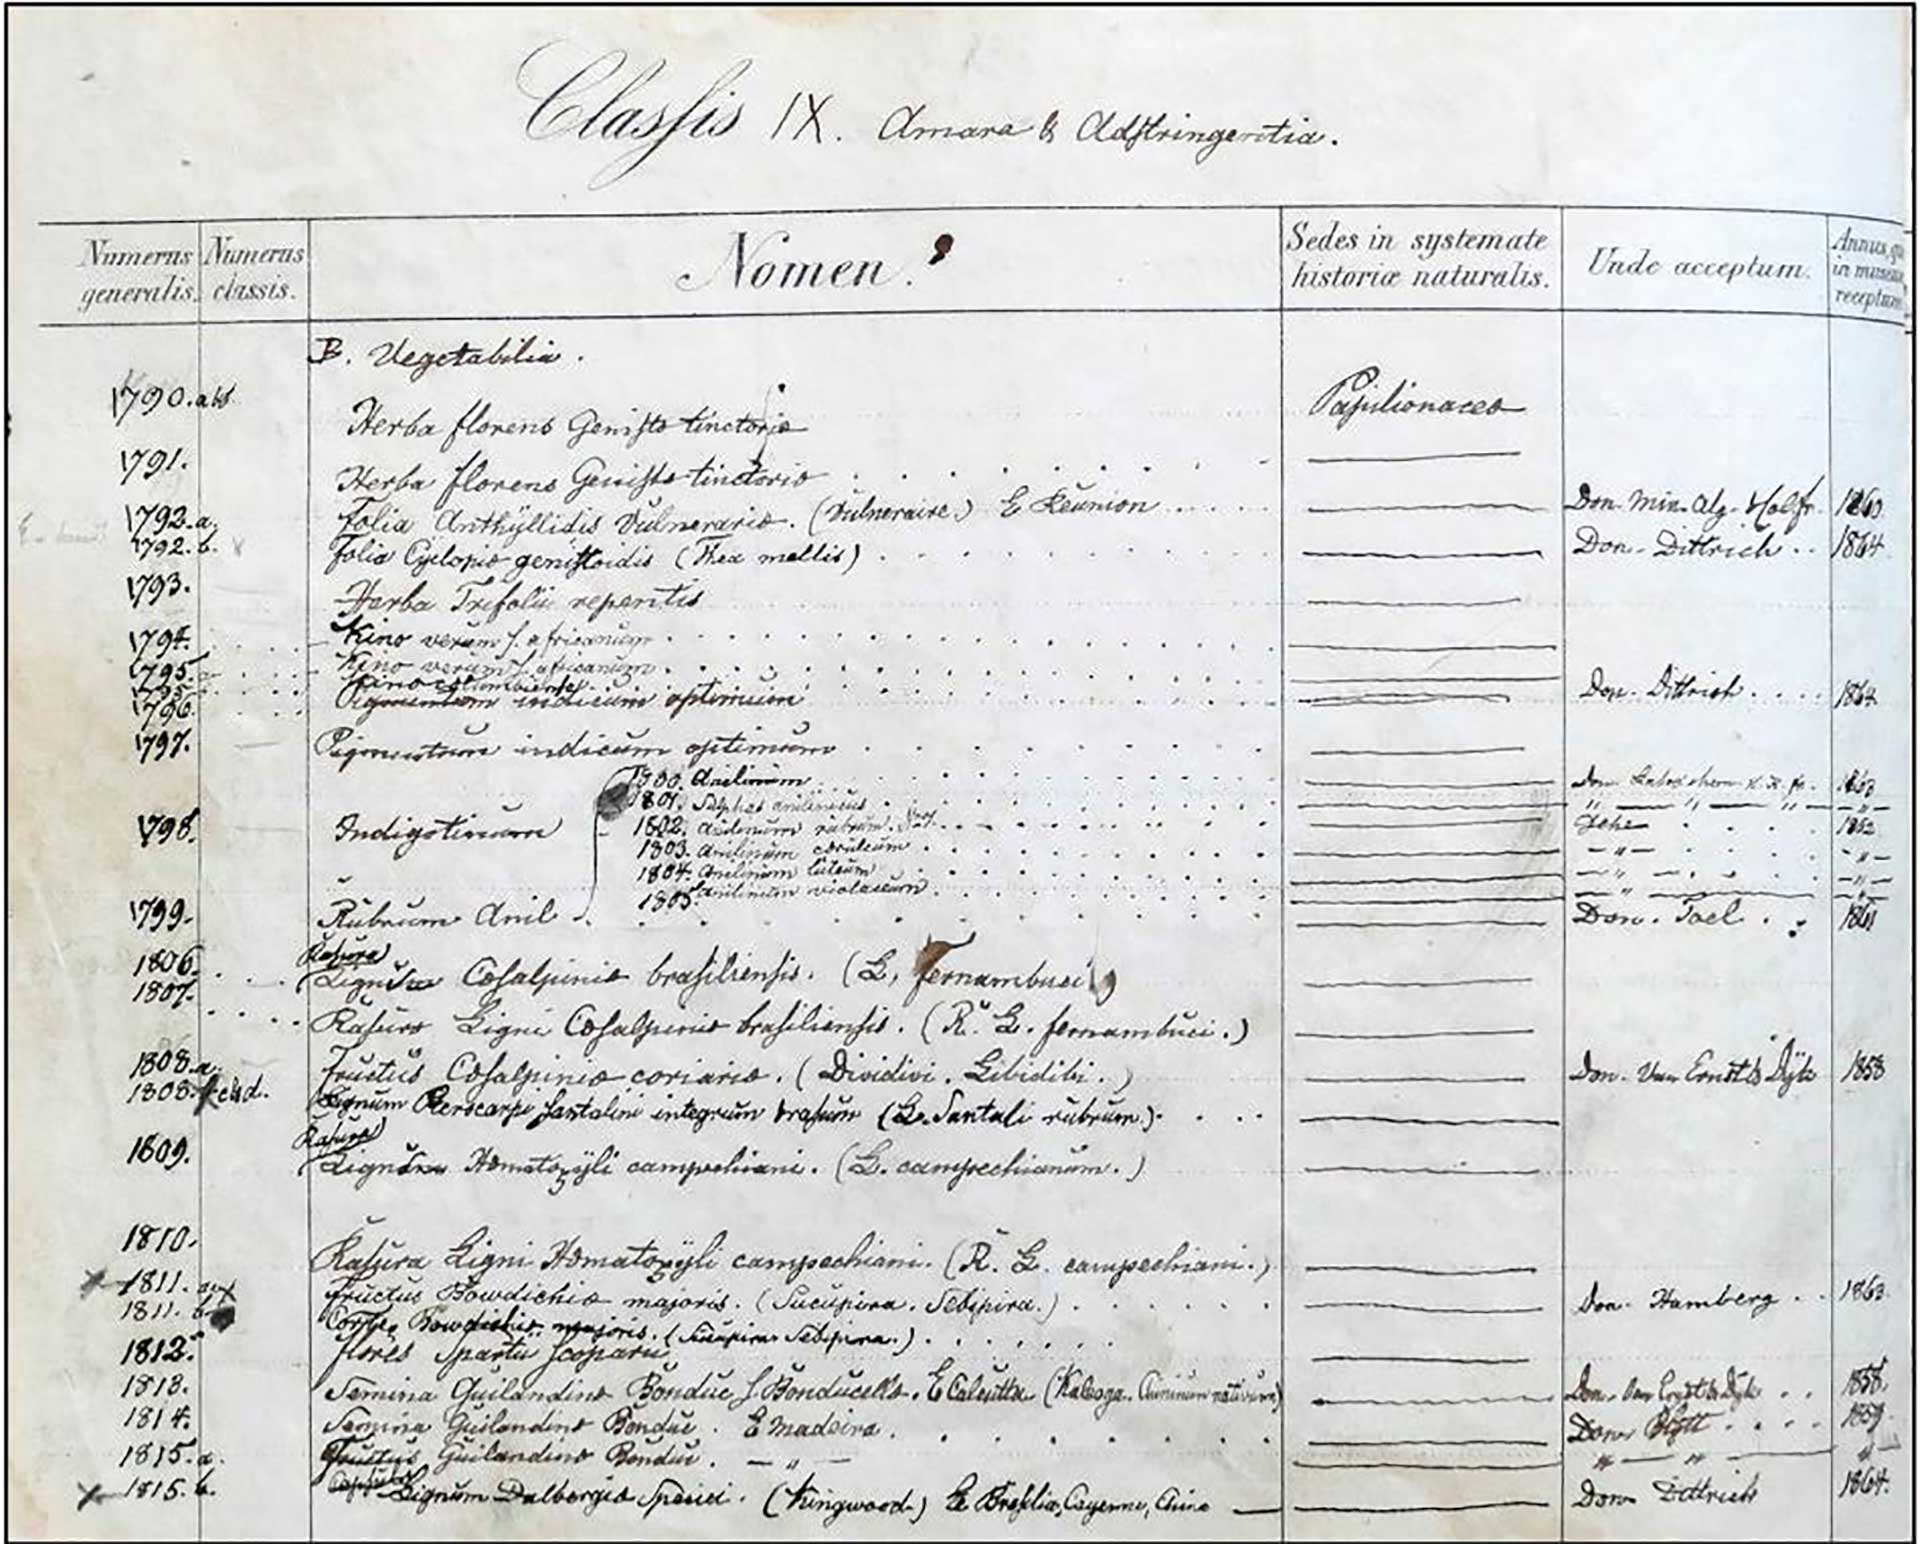 Classis IX. Amara & Adstringentia.
Numerus generalis. Numerus classis. Nomen. Sedes in systemate historiæ naturalis. Unde acceptum. Annus, quo in museum receptum
B. Vegetabilia.
1790. Herba florens Genistæ tinctoriæ Papilionaceæ
1791. Herba florens Genistæ tinctoriæ
1792.a. Folia Anthyllidis Vulnerariæ. (Vulneraire.) E Réunion Don. Min. Alg. 1860
1792.b. Folia Cyclopiæ genistoidis (Thea mellis) Don. Dittrich 1864
1793. Herba Trifolii repentis
1794. Kino verum s. africanum
1795. Kino verum s. africanum
Kino columbiense Don. Dittrich 1864
1796. Pigmentum indicum optimum
1797. Pigmentum indicum optimum
1800. Anilinum
1801. Sulphas anilinicus
1798. Indigotinum 1802. Anilinum rubrum. Gehe 1862
1803. Anilinum cæruleum
1804. Anilinum luteum
1805. Anilinum violaceum
1799. Rubrum Anil Don. 1861
1806. Rasura
1807. Lignum Cæsalpiniæ brasiliensis. (L. fernambuci)
Rasura Ligni Cæsalpiniæ brasiliensis. (R. L. fernambuci.)
1808.a. Fructus Cæsalpiniæ coriariæ. (Dividivi. Libidibi.) Don. Van Ernst & Dÿk 1858
1808. Lignum Pterocarpi santalini integrum & rasum (L. Santali rubrum.)
Rasura
1809. Lignum Hæmatoxÿli campechiani. (L. campechianum.)
1810. Rasura Ligni Hæmatoxÿli campechiani. (R. L. campechiani.)
1811. a Fructus Bowdichiæ majoris. (Sucupira. Sebipira.) Don. Hamberg 1863
1811. b. Cortex Bowdichiæ majoris. (Sucupira Sebipira.)
1812. Flores Spartii scoparii
1813. Semina Guilandinæ Bonduc s. Bonducellæ. E Calcutta Don. Van Ernst & Dÿk 1858
1814. Semina Guilandinæ Bonduc. E Madeira. Don. Blÿtt 1859
1815.a. Fructus Guilandinæ Bonduc. — „ — „ — „ — „
1815.b. Lignum Dalbergiæ Speciei. (Kingwood) E Brasilia, Cayenne, China Don. Dittrich 1864.